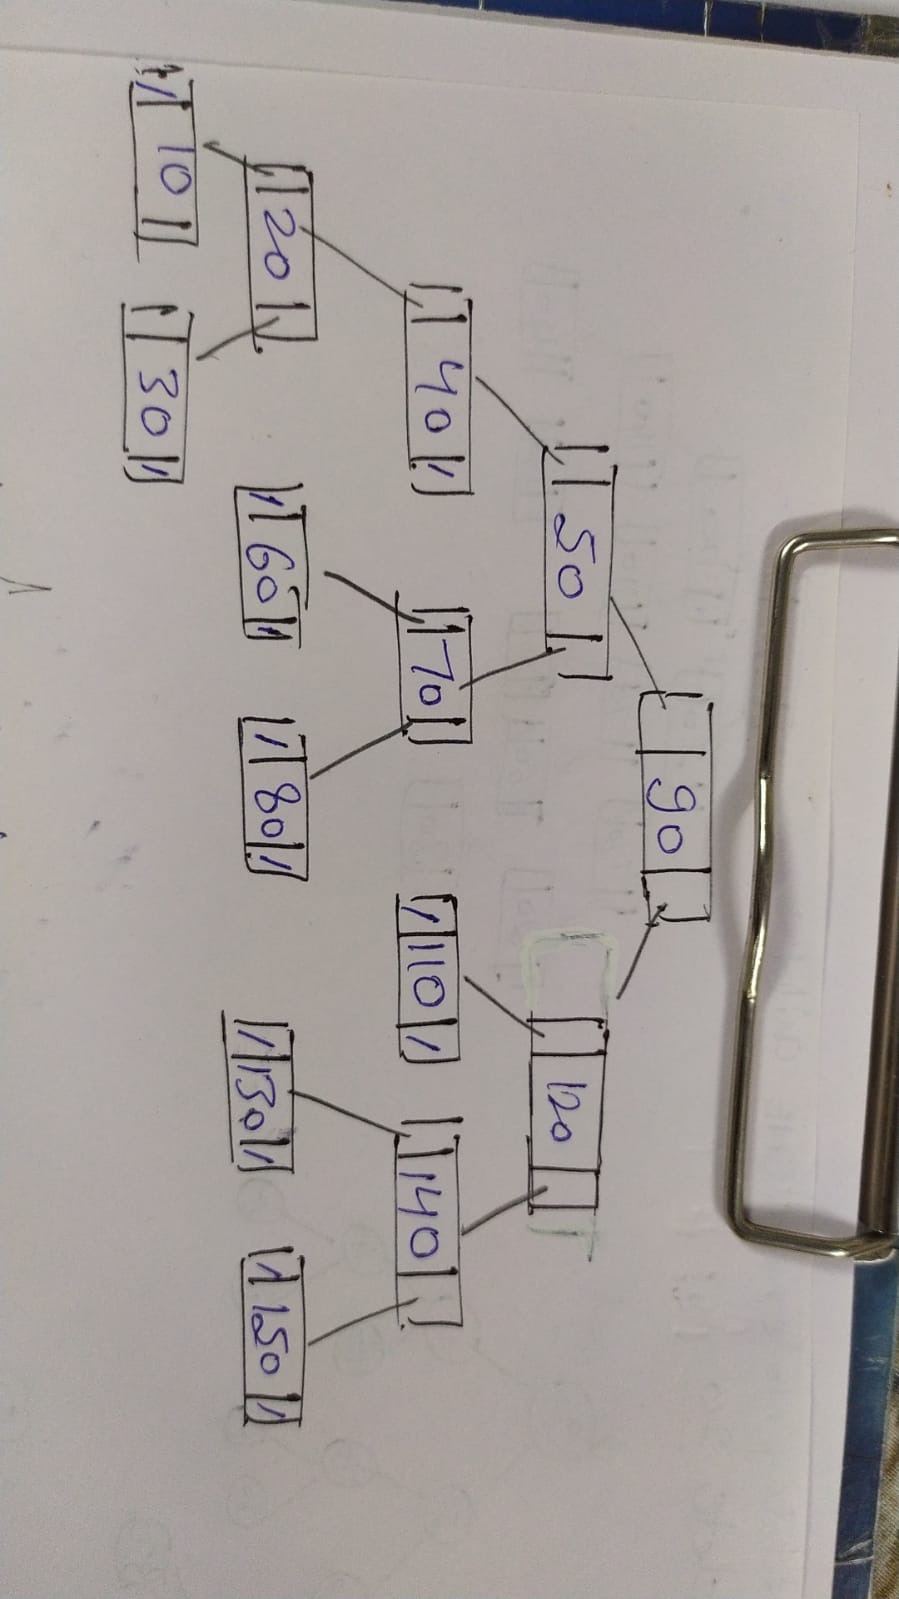 90
50 120
40 70 110 140
20 60 80 130 150
10 30